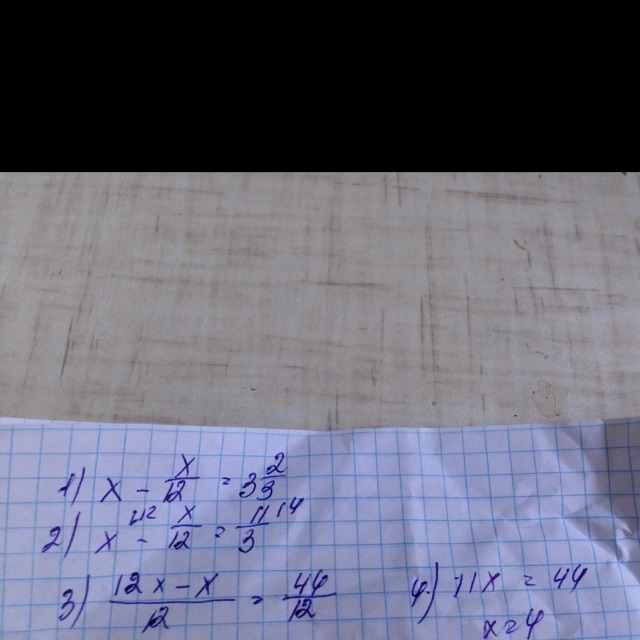 1) x - x/12 = 3 2/3
2) x^12 - x/12 = 11/3^14
3) (12x - x)/12 = 44/12
4.) 11x = 44
x = 4